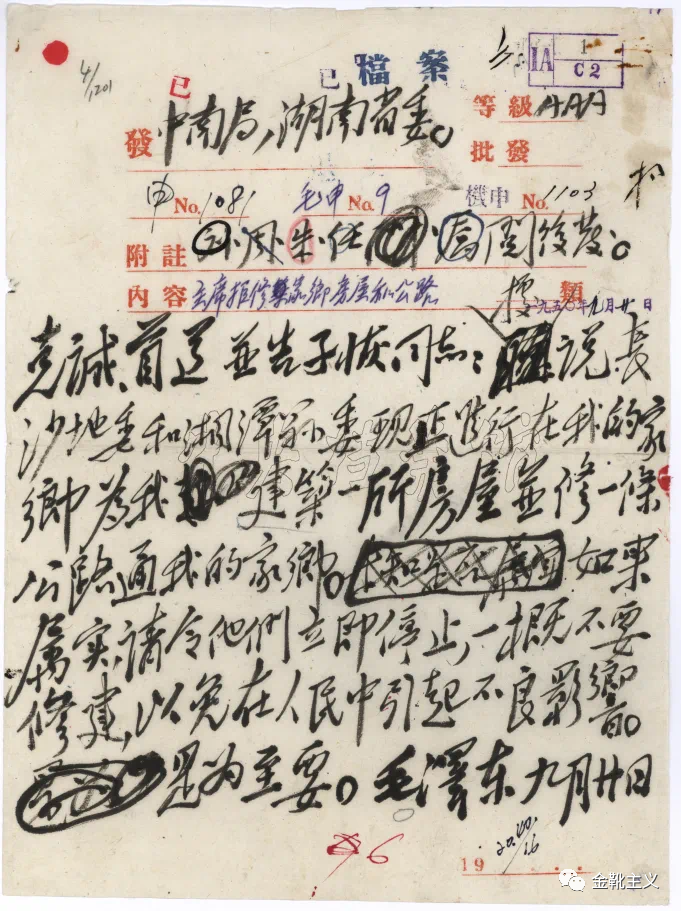 4/1201
已 已 檔案 IA 1 C2
發 中南局，湖南省委。 等級 AAA
批發
申 No. 1081 毛申 No. 9 機申 No. 1103
附註 周 朱 任 閱後發。
內容 主席拒修築家鄉房屋和公路 類 一九五〇年九月廿日
克誠、首道並告子恢同志：據说長
沙地委和湘潭縣委现正進行在我的家
鄉為我建築一所房屋並修一條
公路通我的家鄉。如果
屬实，請令他們立即停止，一概不要
修建，以免在人民中引起不良影響。
是为至要。毛澤东 九月廿日
6
19
金靴主义